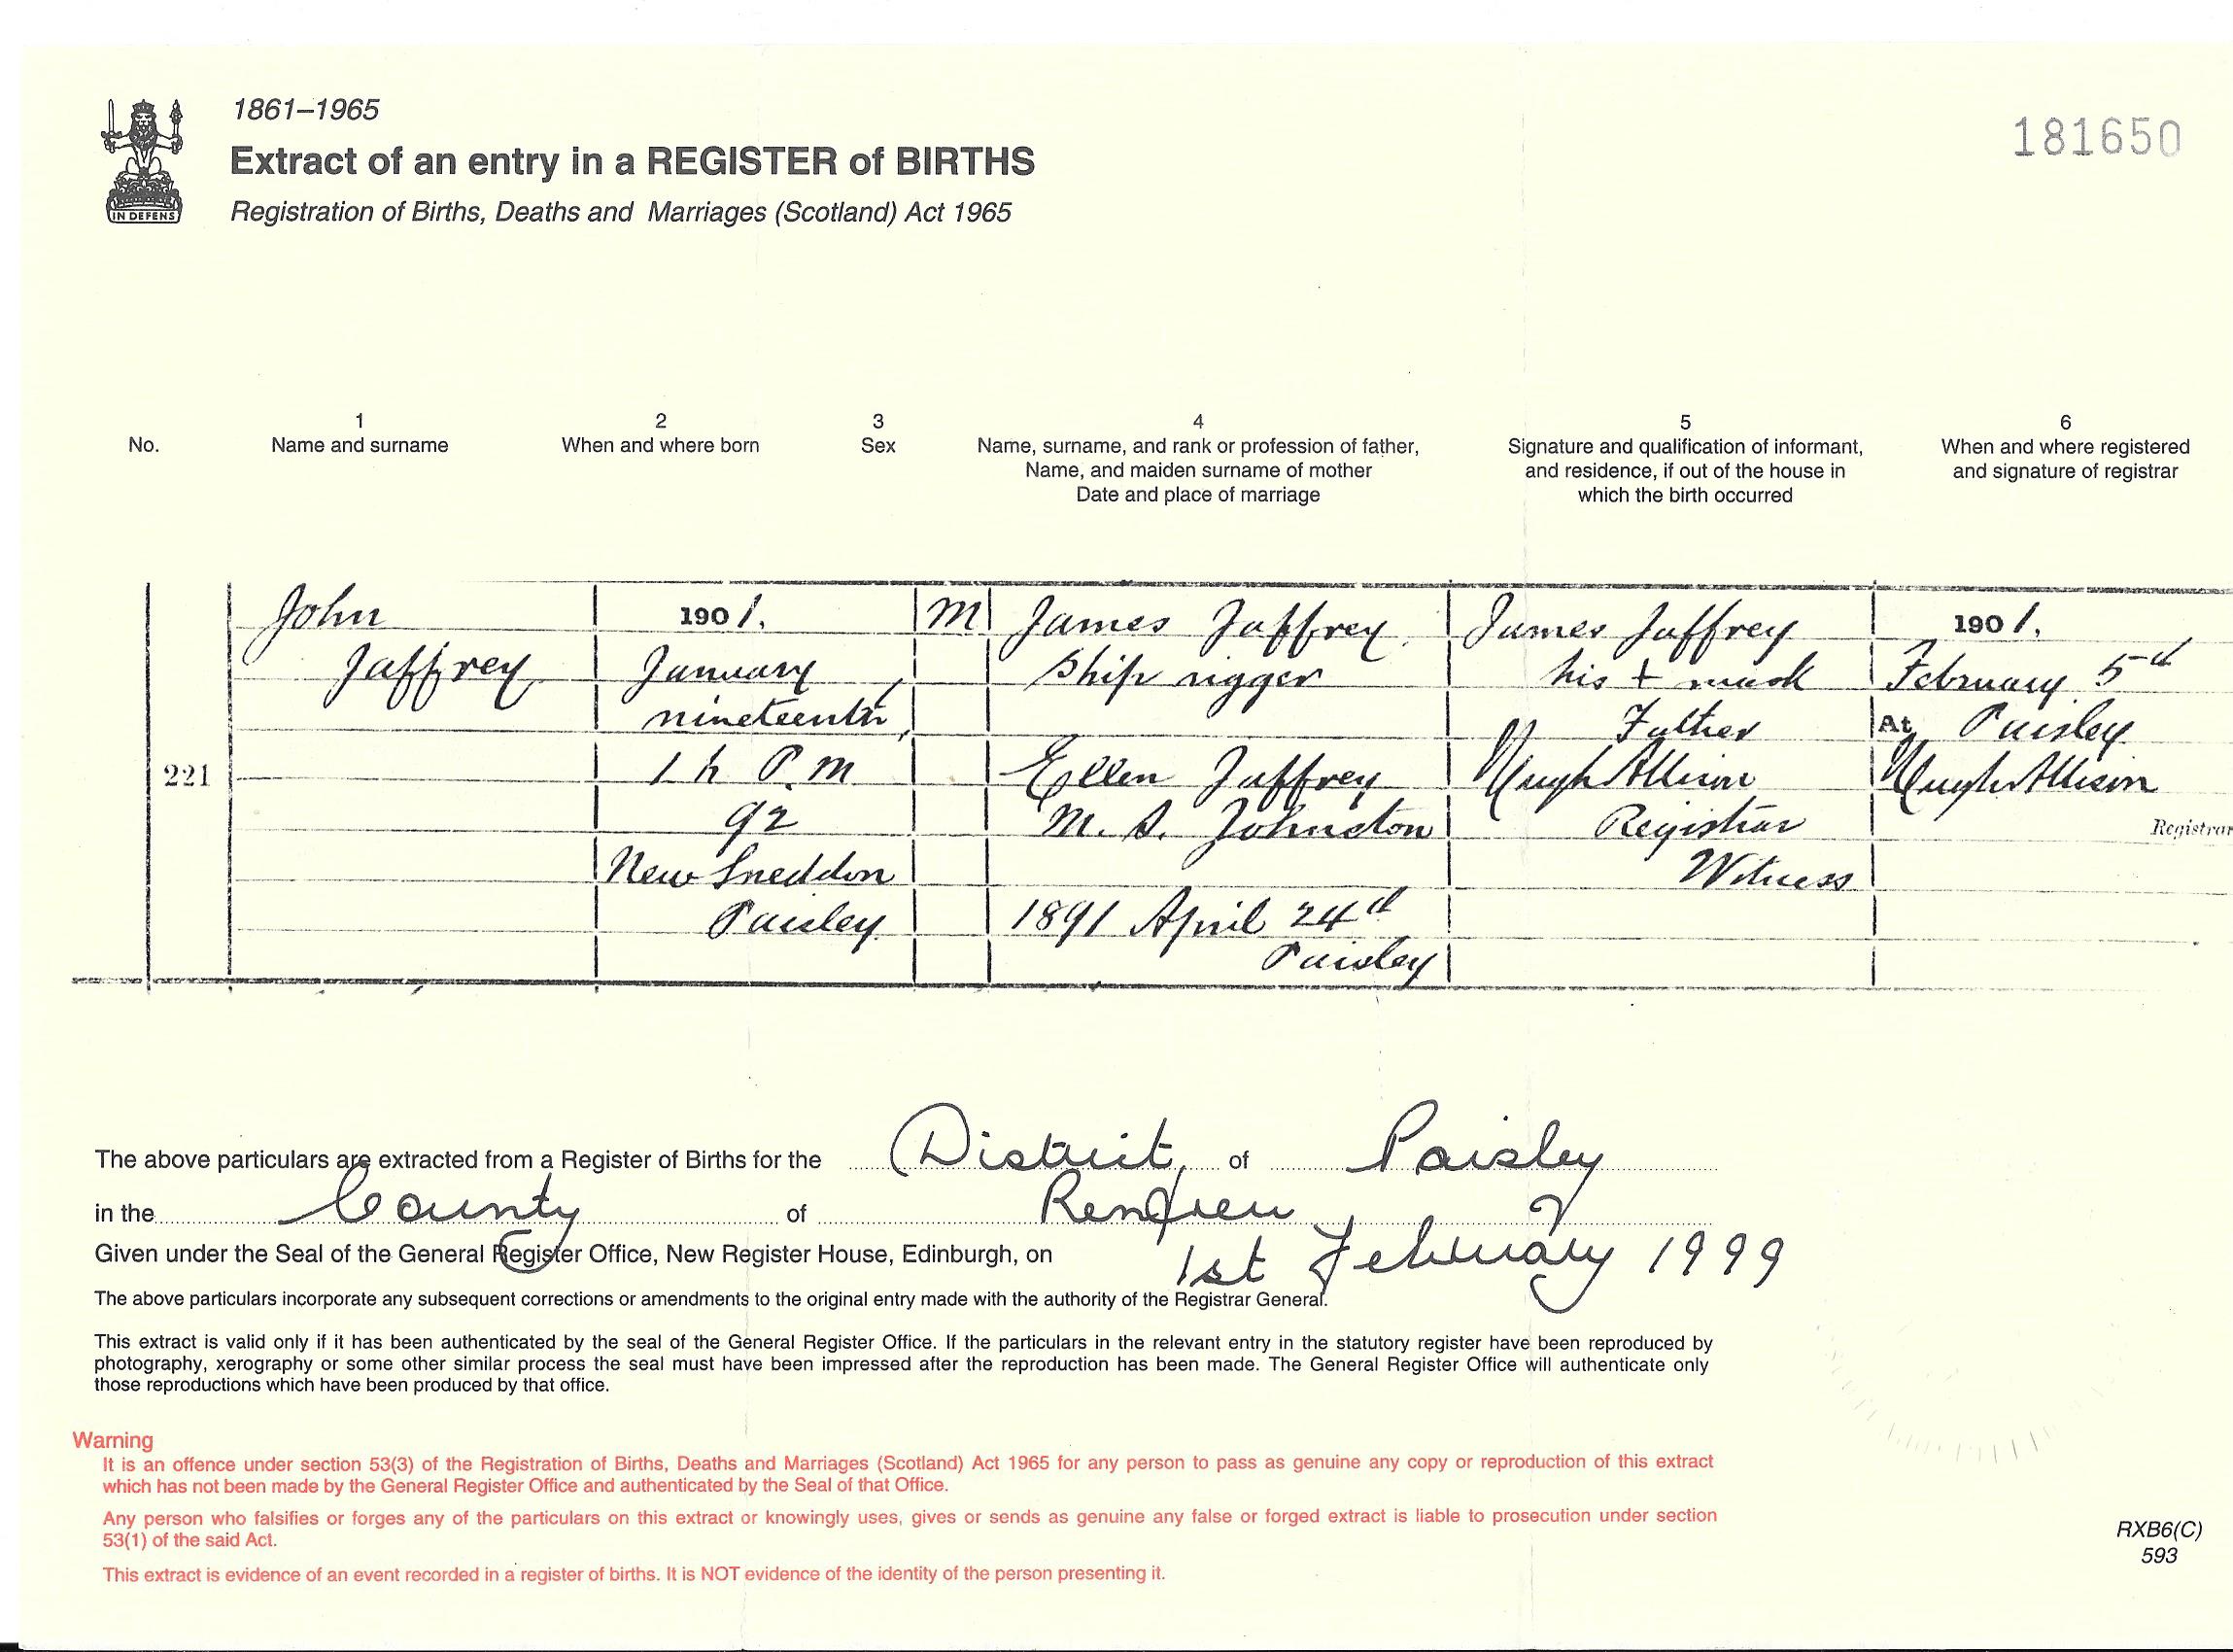 1861–1965
Extract of an entry in a REGISTER of BIRTHS
Registration of Births, Deaths and Marriages (Scotland) Act 1965
IN DEFENS
181650
1
2
3
4
5
6
No.
Name and surname
When and where born
Sex
Name, surname, and rank or profession of father,
Name, and maiden surname of mother
Date and place of marriage
Signature and qualification of informant,
and residence, if out of the house in
which the birth occurred
When and where registered
and signature of registrar
221
John
Jaffrey
1901.
January
nineteenth,
1 h P.M
92
New Sneddon
Paisley
M
James Jaffrey
Ship rigger
Ellen Jaffrey
M.S. Johnston
1891 April 24th
Paisley
James Jaffrey
his + mark
Father
Hugh Allison
Registrar
Witness
1901.
February 5th
At Paisley
Hugh Allison
Registrar
The above particulars are extracted from a Register of Births for the District of Paisley
in the County of Renfrew
Given under the Seal of the General Register Office, New Register House, Edinburgh, on 1st February 1999
The above particulars incorporate any subsequent corrections or amendments to the original entry made with the authority of the Registrar General.
This extract is valid only if it has been authenticated by the seal of the General Register Office. If the particulars in the relevant entry in the statutory register have been reproduced by
photography, xerography or some other similar process the seal must have been impressed after the reproduction has been made. The General Register Office will authenticate only
those reproductions which have been produced by that office.
Warning
It is an offence under section 53(3) of the Registration of Births, Deaths and Marriages (Scotland) Act 1965 for any person to pass as genuine any copy or reproduction of this extract
which has not been made by the General Register Office and authenticated by the Seal of that Office.
Any person who falsifies or forges any of the particulars on this extract or knowingly uses, gives or sends as genuine any false or forged extract is liable to prosecution under section
53(1) of the said Act.
This extract is evidence of an event recorded in a register of births. It is NOT evidence of the identity of the person presenting it.
RXB6(C)
593